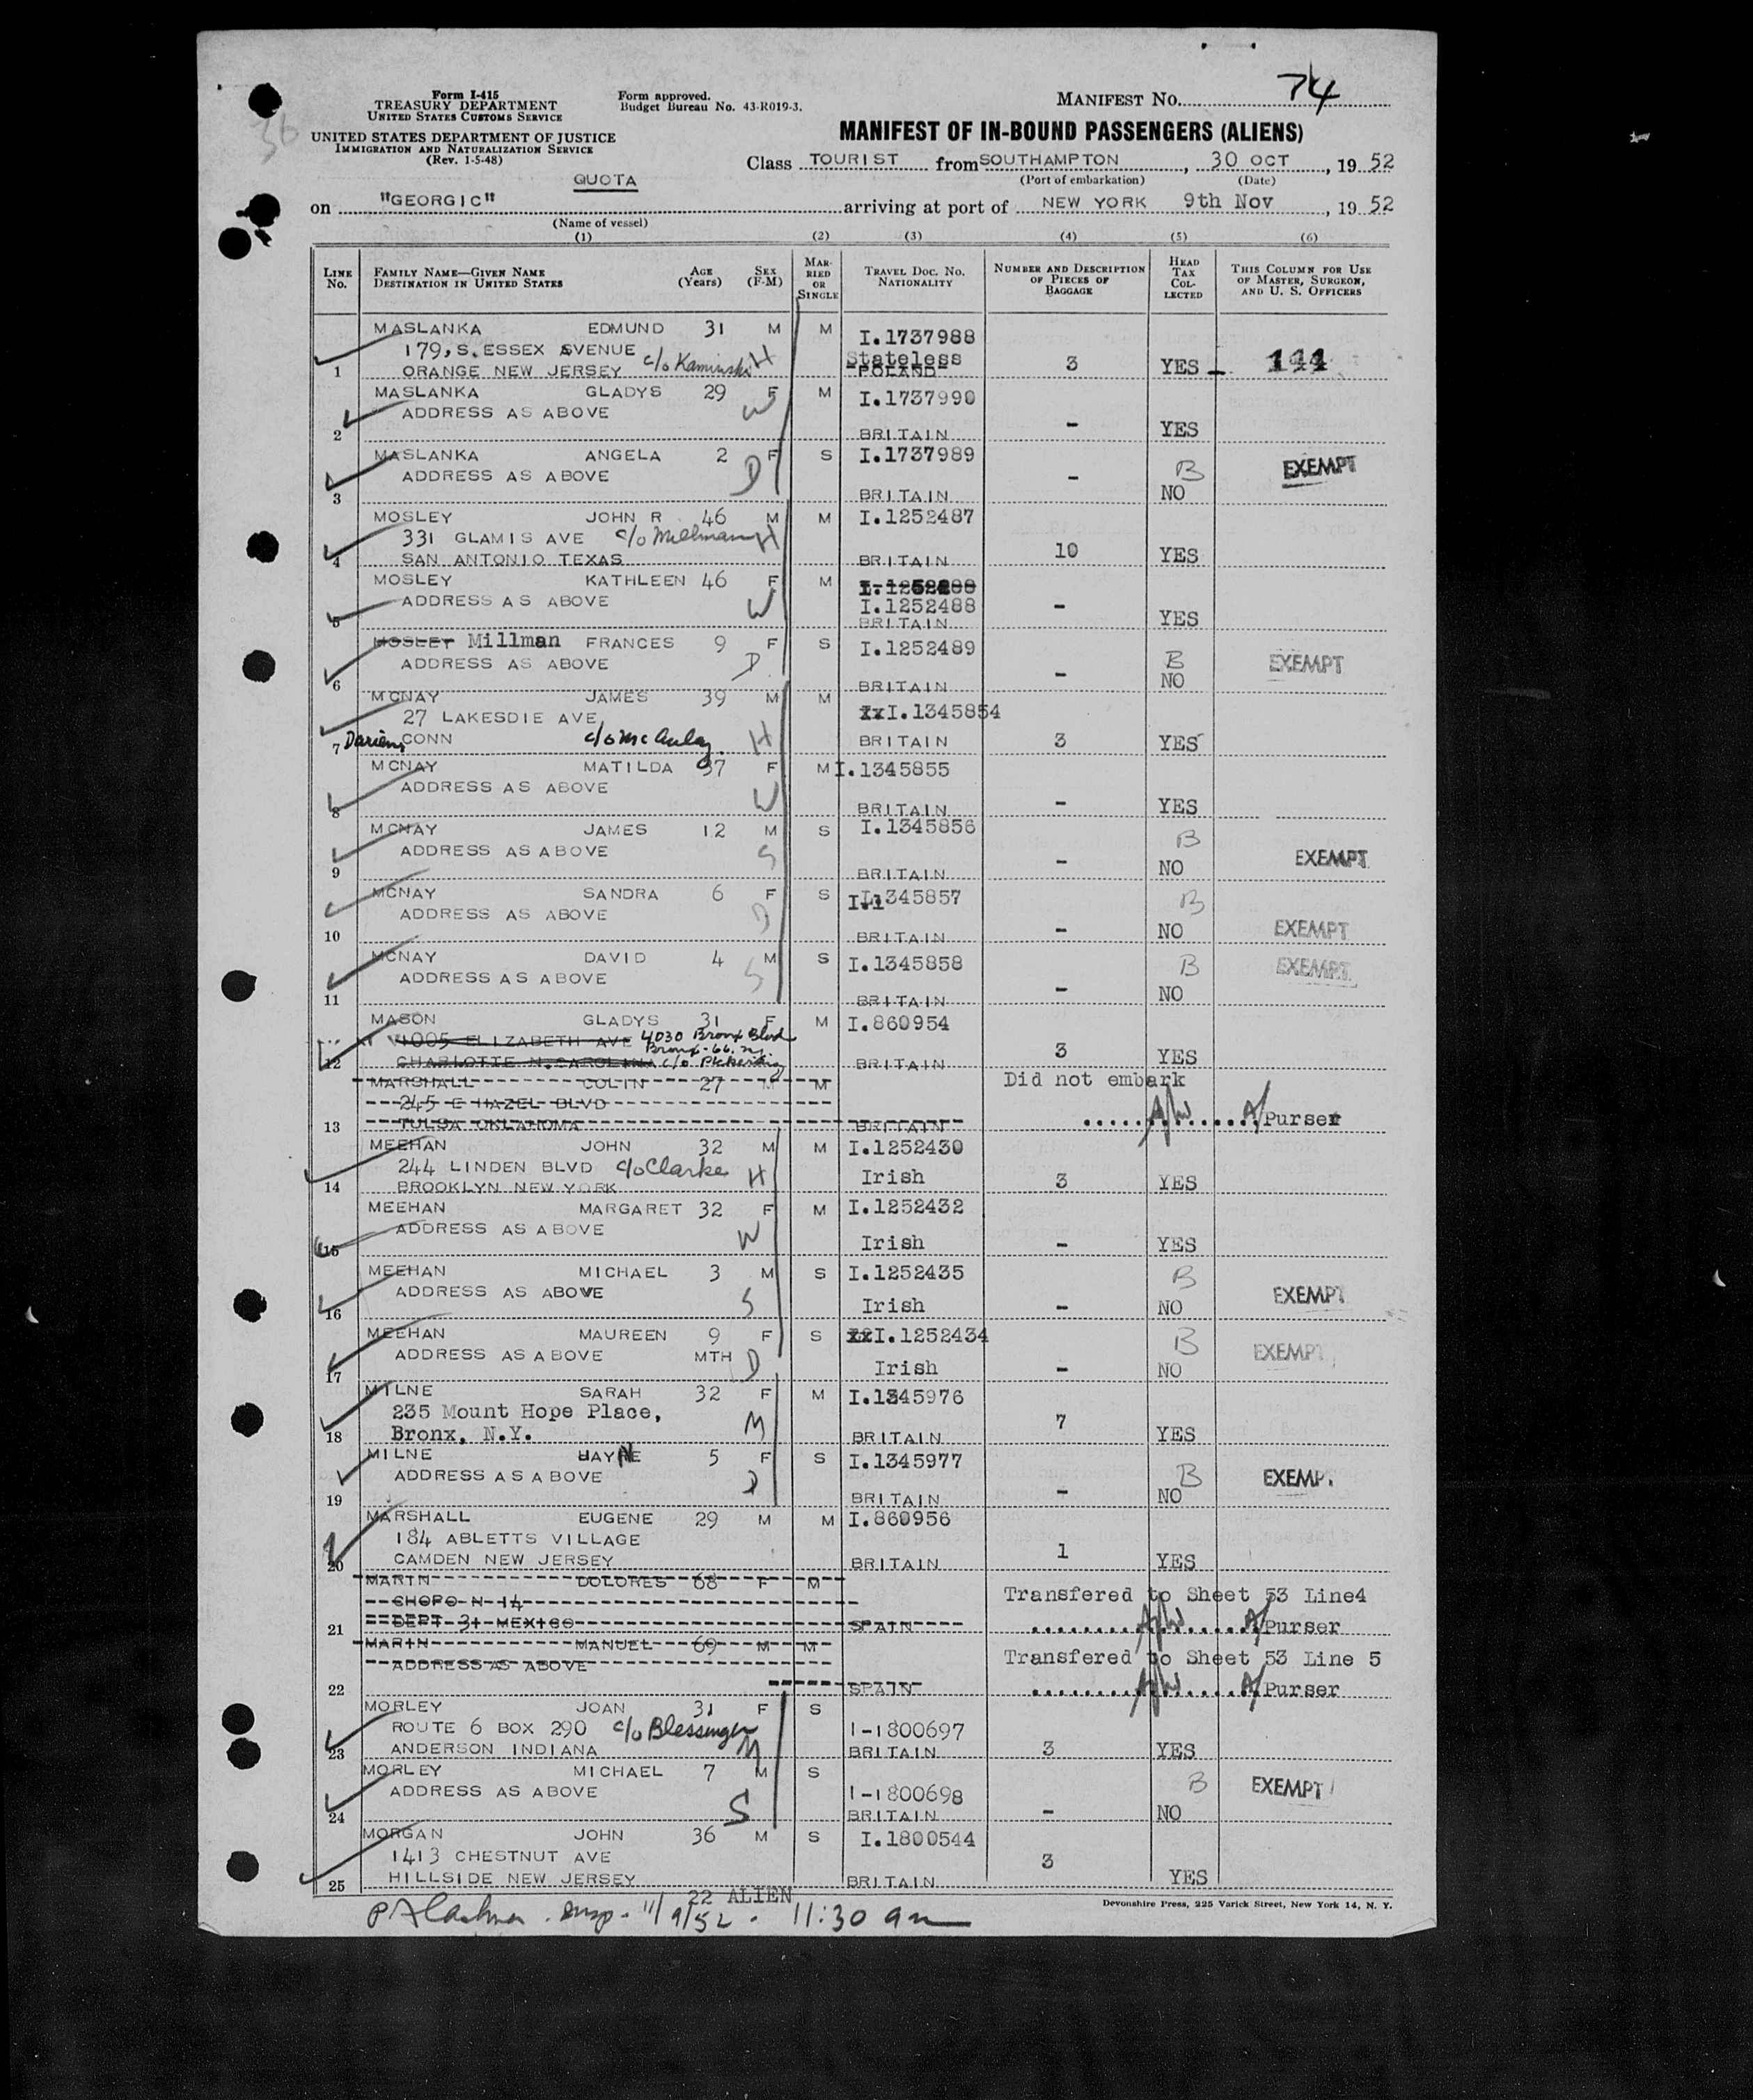 Form I-415
TREASURY DEPARTMENT
UNITED STATES CUSTOMS SERVICE
UNITED STATES DEPARTMENT OF JUSTICE
IMMIGRATION AND NATURALIZATION SERVICE
(Rev. 1-5-48)
Form approved.
Budget Bureau No. 43-R019-3.
MANIFEST NO. 74
36
MANIFEST OF IN-BOUND PASSENGERS (ALIENS)
Class TOURIST from SOUTHAMPTON, 30 OCT, 19 52
(Port of embarkation) (Date)
QUOTA
on "GEORGIC" arriving at port of NEW YORK 9th Nov, 19 52
(Name of vessel)
(1) (2) (3) (4) (5) (6)
LINE NO. FAMILY NAME—GIVEN NAME DESTINATION IN UNITED STATES AGE (Years) SEX (F-M) MARRIED OR SINGLE TRAVEL DOC. NO. NATIONALITY NUMBER AND DESCRIPTION OF PIECES OF BAGGAGE HEAD TAX COLLECTED THIS COLUMN FOR USE OF MASTER, SURGEON, AND U. S. OFFICERS
MASLANKA EDMUND 31 M M I.1737988
179, S. ESSEX AVENUE c/o Kaminski H Stateless
1 ORANGE NEW JERSEY POLAND 3 YES 144
MASLANKA GLADYS 29 F M I.1737990
ADDRESS AS ABOVE W
2 BRITAIN - YES
MASLANKA ANGELA 2 F S I.1737989
ADDRESS AS ABOVE D B EXEMPT
3 BRITAIN - NO
MOSLEY JOHN R 46 M M I.1252487
331 GLAMIS AVE c/o Millman H
4 SAN ANTONIO TEXAS BRITAIN 10 YES
MOSLEY KATHLEEN 46 F M I.1252488
ADDRESS AS ABOVE W I.1252488
5 BRITAIN - YES
MOSLEY Millman FRANCES 9 F S I.1252489
ADDRESS AS ABOVE D B EXEMPT
6 BRITAIN - NO
MCNAY JAMES 39 M M I.1345854
27 LAKESDIE AVE
7 Darien, CONN c/o McAulay. H BRITAIN 3 YES
MCNAY MATILDA 37 F M I.1345855
ADDRESS AS ABOVE W
8 BRITAIN - YES
MCNAY JAMES 12 M S I.1345856
ADDRESS AS ABOVE S B EXEMPT
9 BRITAIN - NO
MCNAY SANDRA 6 F S I.1345857
ADDRESS AS ABOVE D B EXEMPT
10 BRITAIN - NO
MCNAY DAVID 4 M S I.1345858
ADDRESS AS ABOVE S B EXEMPT
11 BRITAIN - NO
MASON GLADYS 31 F M I.860954
1005 ELIZABETH AVE 4030 Bronx Blvd
Bronx-66. N.Y.
12 CHARLOTTE N.CAROLINA c/o Pickering BRITAIN 3 YES
MARSHALL COLIN 27 M M Did not embark
245 E HAZEL BLVD
13 TULSA OKLAHOMA BRITAIN A/Purser
MEEHAN JOHN 32 M M I.1252430
244 LINDEN BLVD c/o Clarke H Irish
14 BROOKLYN NEW YORK 3 YES
MEEHAN MARGARET 32 F M I.1252432
ADDRESS AS ABOVE W
15 Irish - YES
MEEHAN MICHAEL 3 M S I.1252435
ADDRESS AS ABOVE S B EXEMPT
16 Irish - NO
MEEHAN MAUREEN 9 F S I.1252434
ADDRESS AS ABOVE MTH D B EXEMPT
17 Irish - NO
MILNE SARAH 32 F M I.1345976
235 Mount Hope Place, M
18 Bronx, N.Y. BRITAIN 7 YES
MILNE JAYNE 5 F S I.1345977
ADDRESS AS ABOVE D B EXEMP.
19 BRITAIN - NO
MARSHALL EUGENE 29 M M I.860956
184 ABLETTS VILLAGE
20 CAMDEN NEW JERSEY BRITAIN 1 YES
MARIN DOLORES 68 F M Transfered to Sheet 53 Line4
CHOPO N 14
21 DEPT 31 MEXICO SPAIN A/Purser
MARIN MANUEL 69 M M Transfered to Sheet 53 Line 5
ADDRESS AS ABOVE
22 SPAIN A/Purser
MORLEY JOAN 31 F S
ROUTE 6 BOX 290 c/o Blessinger I-1800697
23 ANDERSON INDIANA M BRITAIN 3 YES
MORLEY MICHAEL 7 M S
ADDRESS AS ABOVE S I-1800698 B EXEMPT
24 BRITAIN - NO
MORGAN JOHN 36 M S I.1800544
1413 CHESTNUT AVE
25 HILLSIDE NEW JERSEY BRITAIN 3 YES
22 ALIEN
Devonshire Press, 225 Varick Street, New York 14, N. Y.
insp. 11/9/52. 11:30 am